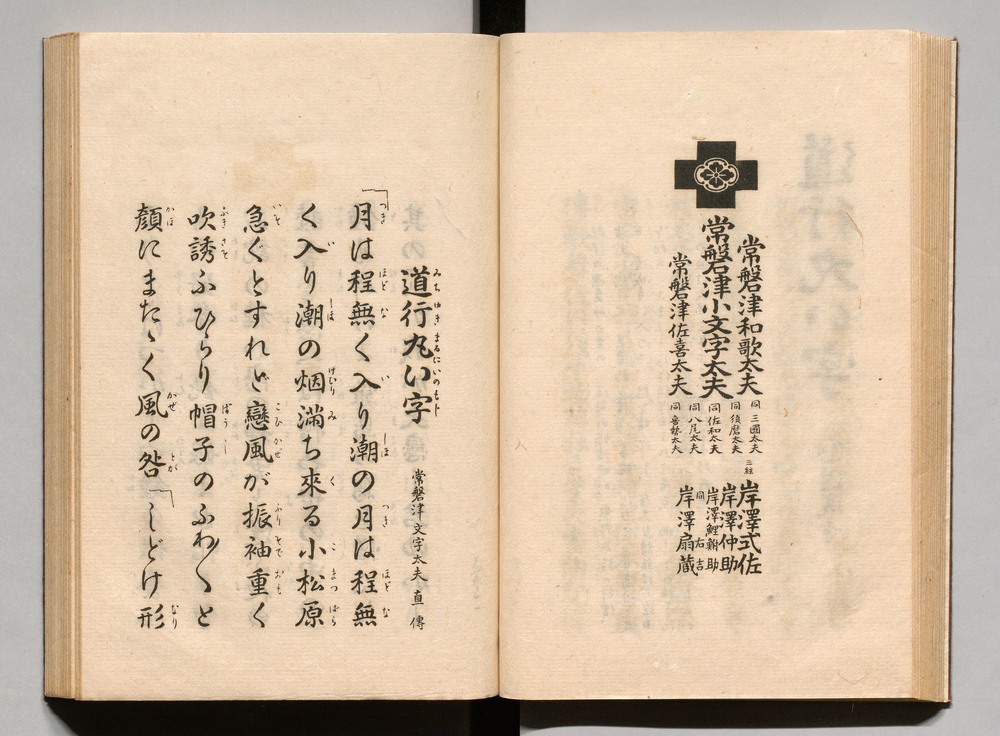 常磐津和歌太夫
常磐津小文字太夫
常磐津佐喜太夫
同 三國太夫
同 須磨太夫
同 佐和太夫
同 八尾太夫
三絃
岸澤式佐
岸澤仲助
岸澤鯉鮒助
同 右吉
岸澤扇蔵
道行丸い字
みちゆきまるにいのもじ
常磐津文字太夫直傳
月は程無く入り潮の月は程無
く入り潮の烟満ち來る小松原
急ぐとすれど戀風が振袖重く
吹誘ふひらり帽子のふわ〳〵と
顔にまたゝく風の咎しどけ形